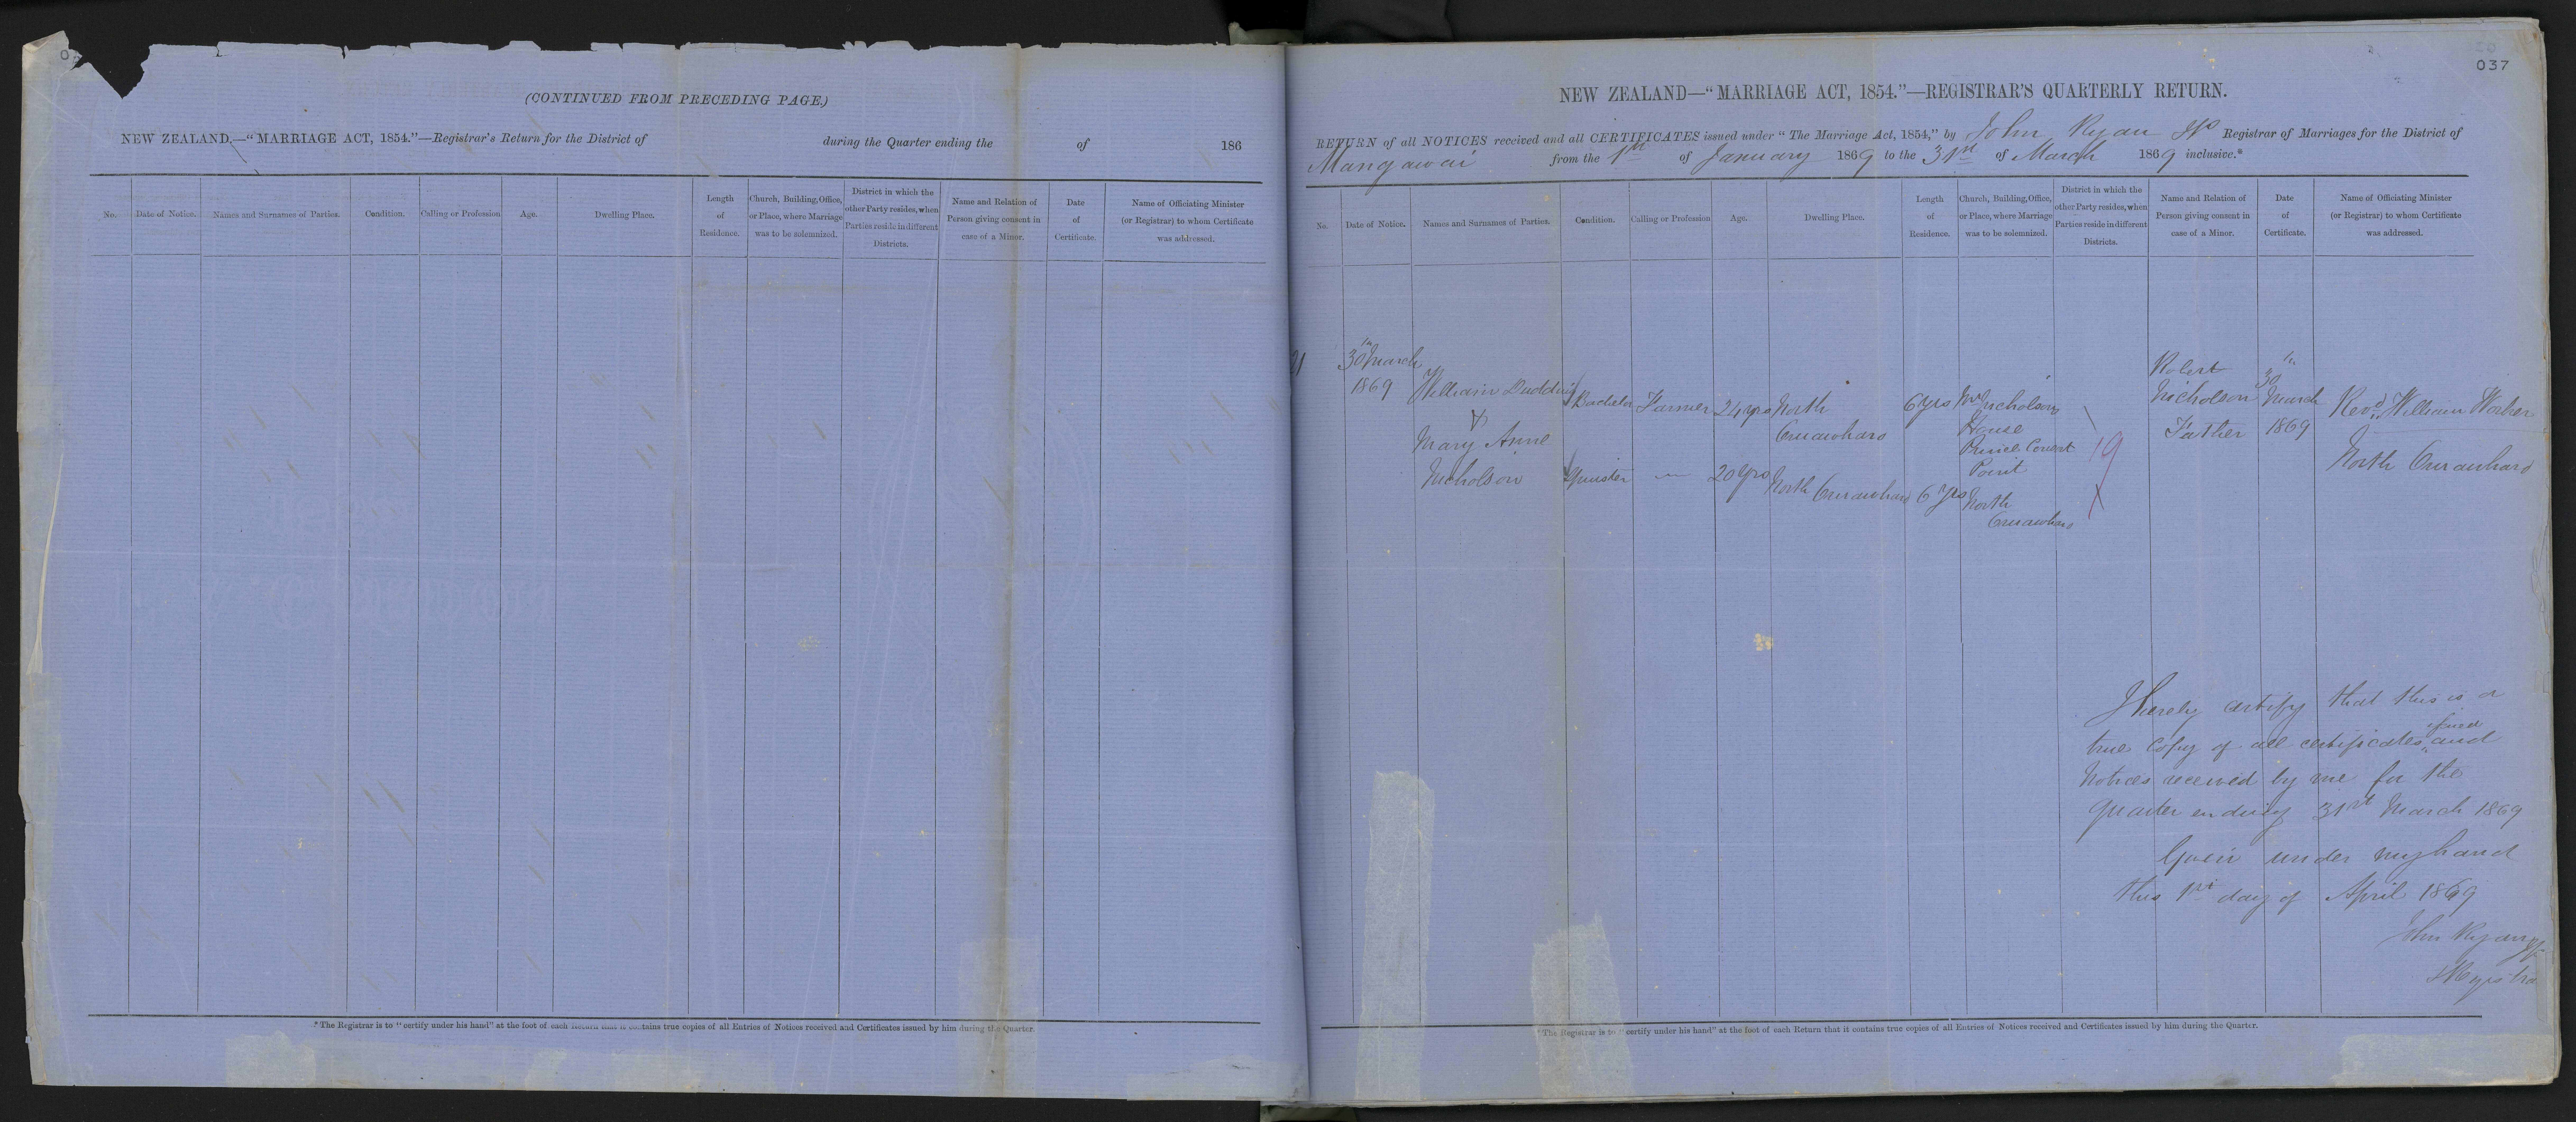 (CONTINUED FROM PRECEDING PAGE.)
NEW ZEALAND.—"MARRIAGE ACT, 1854."—Registrar's Return for the District of during the Quarter ending the of 186
No.
Date of Notice.
Names and Surnames of Parties.
Condition.
Calling or Profession
Age.
Dwelling Place.
Length
of
Residence.
Church, Building, Office,
or Place, where Marriage
was to be solemnized.
District in which the
other Party resides, when
Parties reside in different
Districts.
Name and Relation of
Person giving consent in
case of a Minor.
Date
of
Certificate.
Name of Officiating Minister
(or Registrar) to whom Certificate
was addressed.
* The Registrar is to "certify under his hand" at the foot of each Return that it contains true copies of all Entries of Notices received and Certificates issued by him during the Quarter.
037
NEW ZEALAND—"MARRIAGE ACT, 1854."—REGISTRAR'S QUARTERLY RETURN.
RETURN of all NOTICES received and all CERTIFICATES issued under "The Marriage Act, 1854," by John Ryan JP Registrar of Marriages for the District of
Mangawai from the 1st of January 1869 to the 31st of March 1869 inclusive.*
No.
Date of Notice.
Names and Surnames of Parties.
Condition.
Calling or Profession
Age.
Dwelling Place.
Length
of
Residence.
Church, Building, Office,
or Place, where Marriage
was to be solemnized.
District in which the
other Party resides, when
Parties reside in different
Districts.
Name and Relation of
Person giving consent in
case of a Minor.
Date
of
Certificate.
Name of Officiating Minister
(or Registrar) to whom Certificate
was addressed.
21
30th March
1869
William Dudding
&
Mary Anne
Nicholson
Bachelor
Spinster
Farmer
24 yrs
20 yrs
North
Oruawharo
North Oruawharo
6 yrs
6 yrs
Mr Nicholsons
House
Point
North
Oruawharo
19
Robert
Nicholson
Father
30th
March
1869
Revd. William Worker
North Oruawharo
I hereby certify that this is a
true Copy of all certificates and
Notices received by me for the
quarter ending 31st March 1869
Given under my hand
this 1st day of April 1869
John Ryan JP
Registrar
* The Registrar is to "certify under his hand" at the foot of each Return that it contains true copies of all Entries of Notices received and Certificates issued by him during the Quarter.